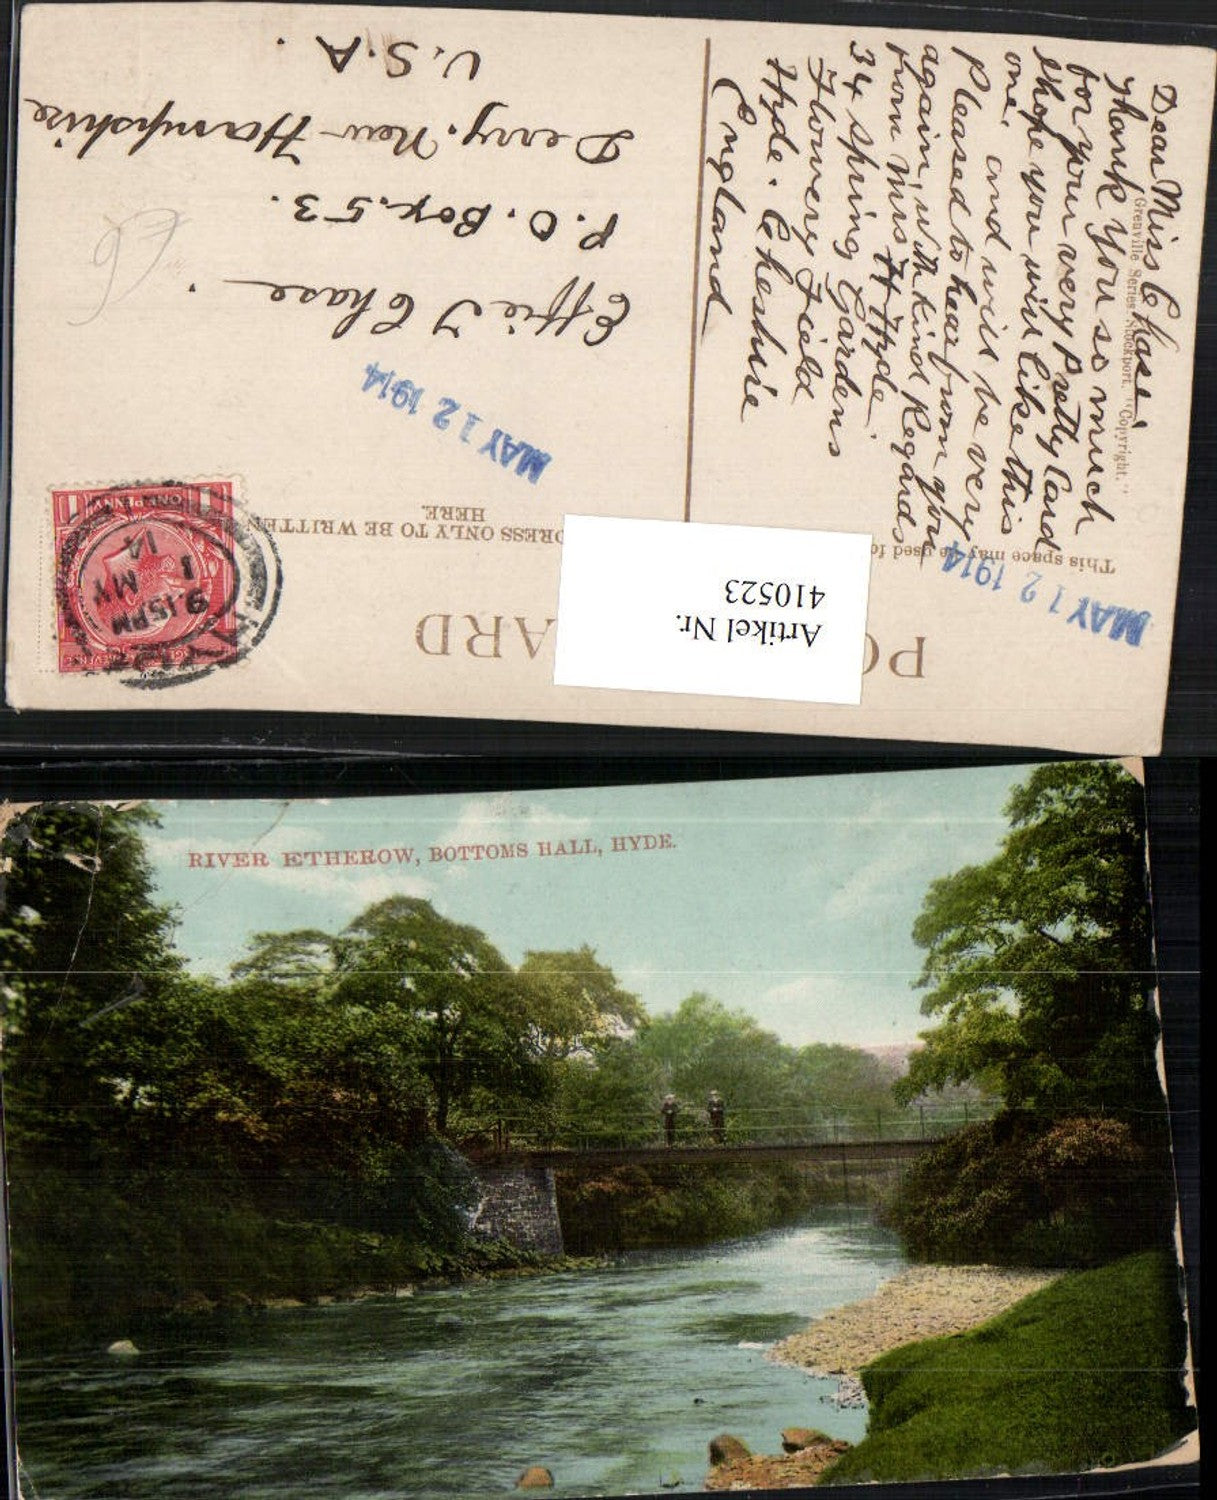 POST CARD
This space may be used for
ADDRESS ONLY TO BE WRITTEN
HERE.
Grenville Series, Stockport. "Copyright."
Artikel Nr.
410523
MAY 12 1914
MAY 12 1914
HYDE
9.15 PM
1 MY
14
ONE PENNY
Dear Miss Chase
Thank you so much
for your very Pretty Card
I hope you will like this
one. and will be very
Pleased to hear from you
again, with kind Regards
from Mrs H Hyde.
34 Spring Gardens
Flowery Field
Hyde. Cheshire
England
Effie J Chase
P.O. Box. 53.
Derry. New Hampshire
U.S.A.
£6
RIVER ETHEROW, BOTTOMS HALL, HYDE.